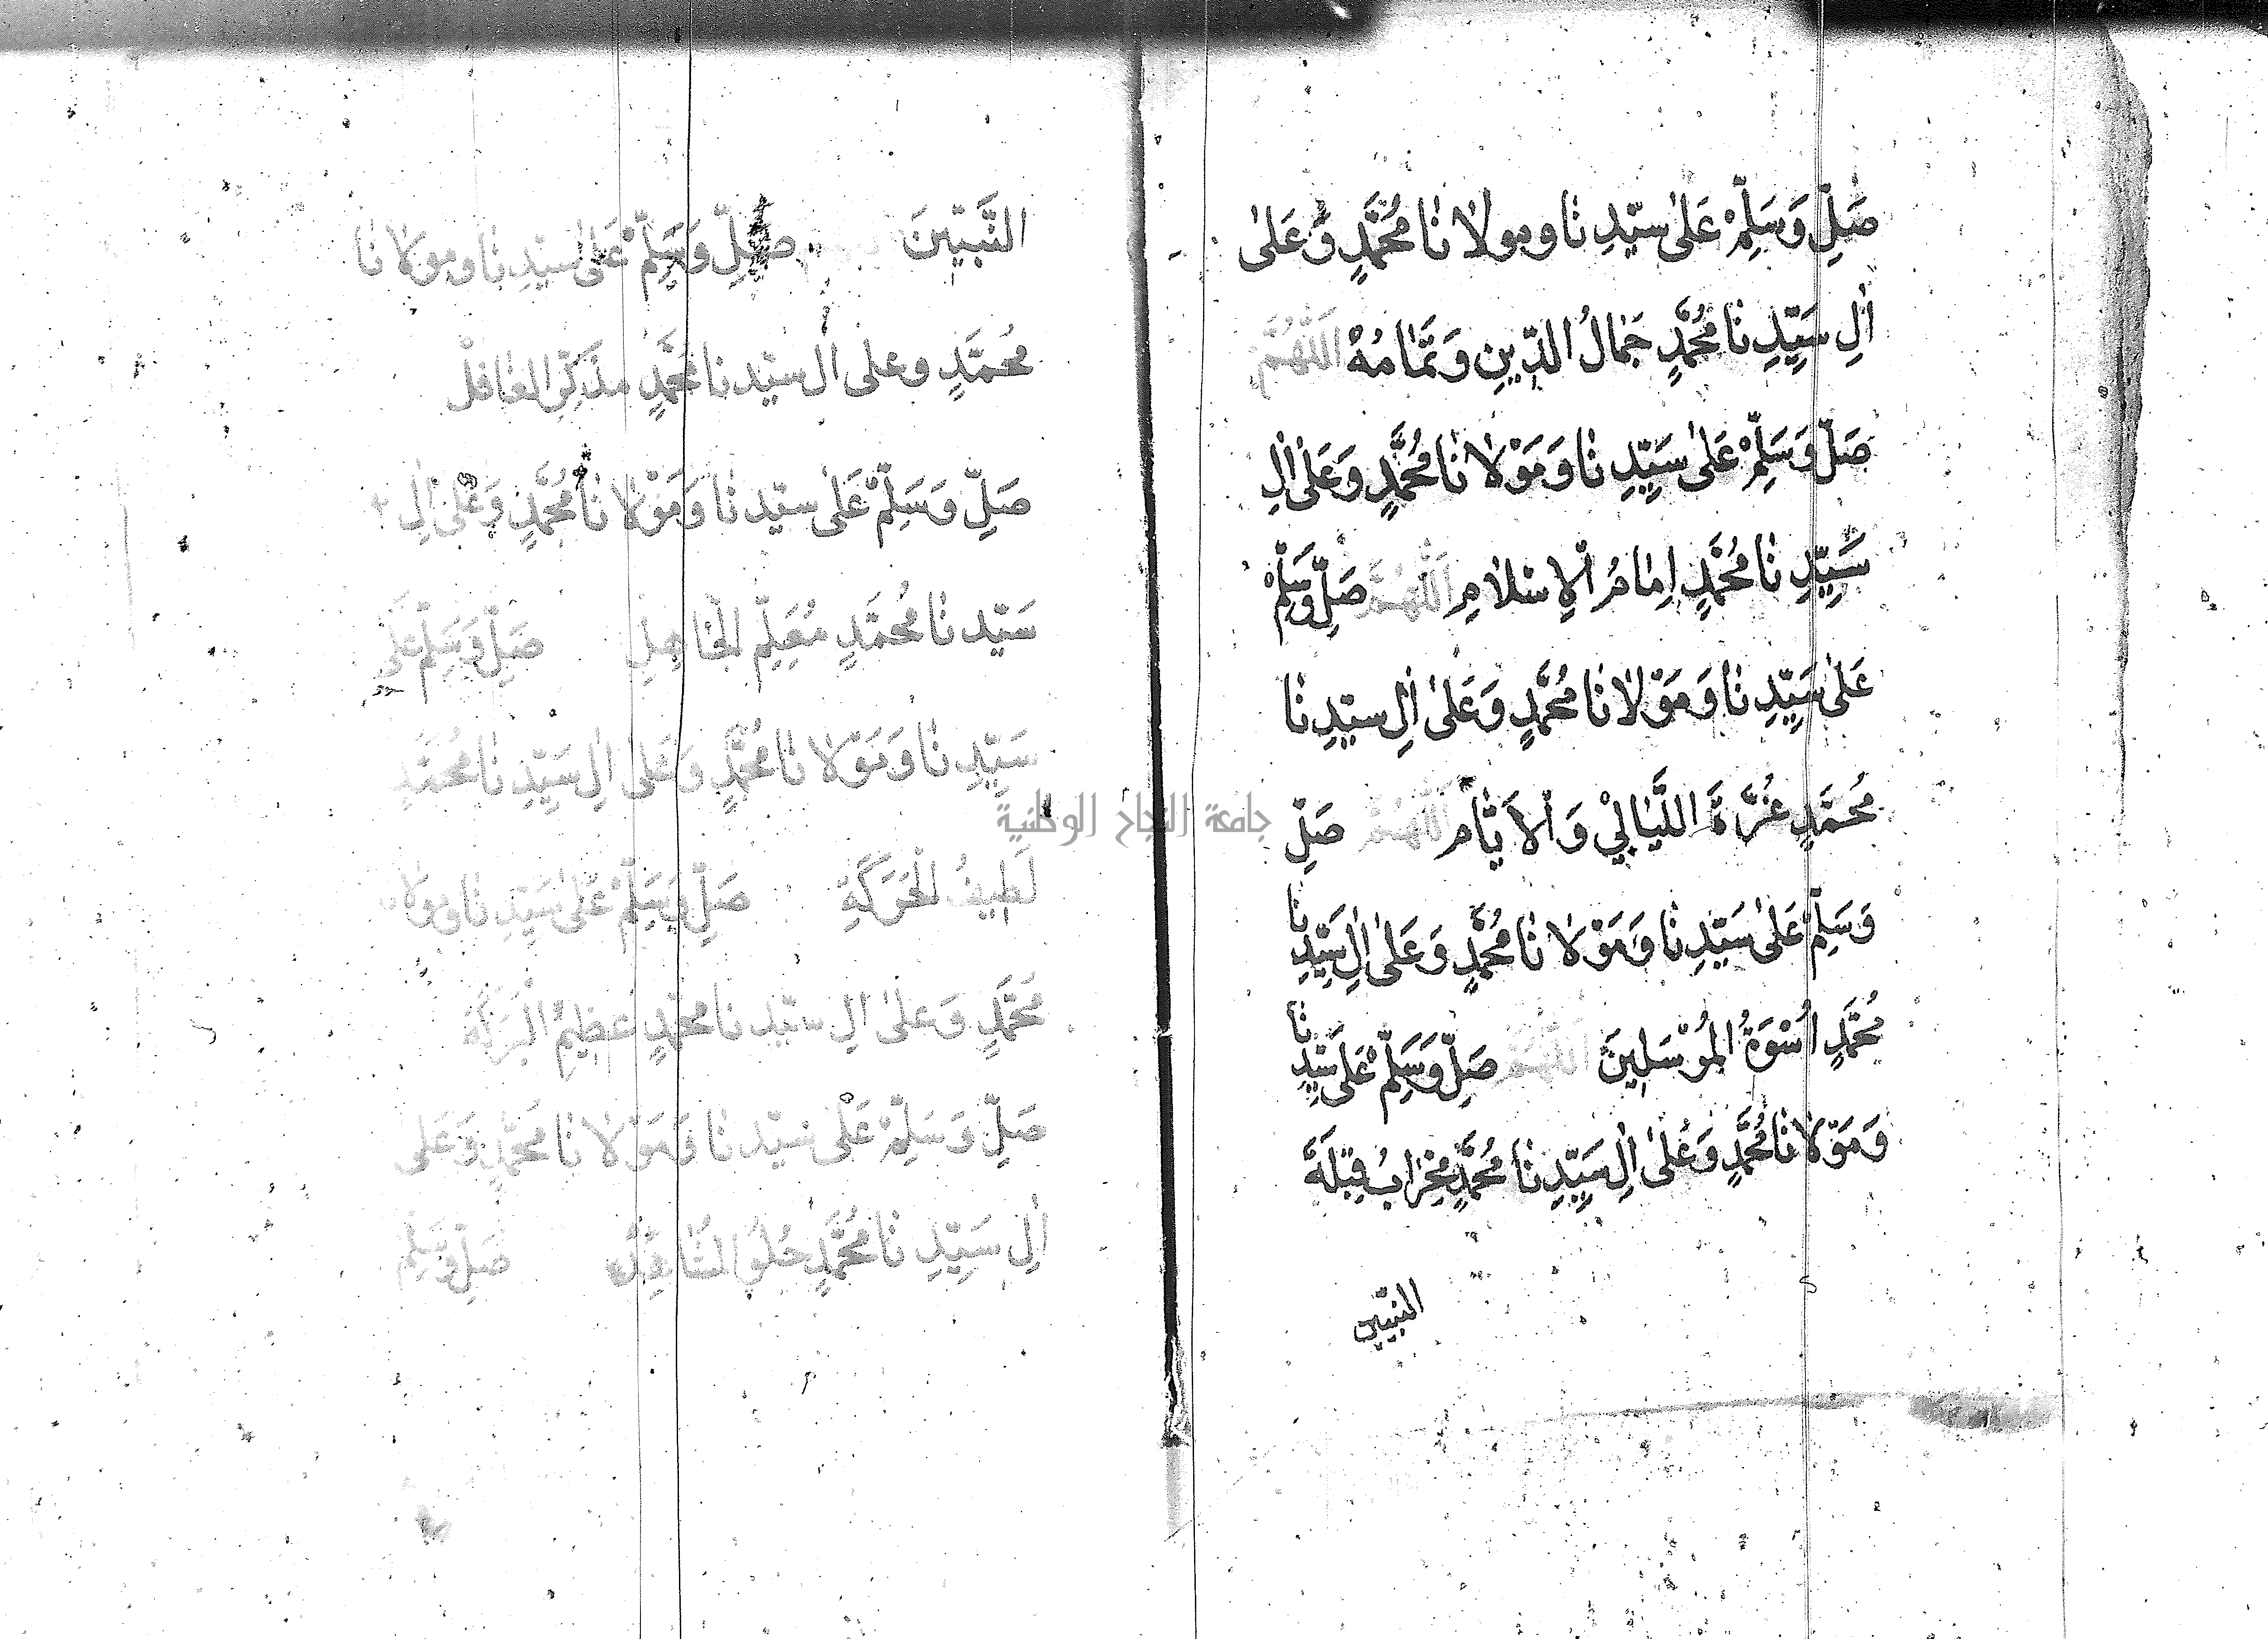 صَلِّ وَسَلِّمْ عَلىٰ سيّدِنا ومولانا مُحَمَّدٍ وَعَلىٰ
اٰلِ سَيِّدِنا مُحَمَّدٍ جَمَالُ الدّينِ وَتَمَامُهْ اَللّٰهُمَّ
صَلِّ وَسَلِّمْ عَلىٰ سَيِّدِنا وَمَوْلانا مُحَمَّدٍ وَعَلىٰ اٰلِ
سَيِّدِنا مُحَمَّدٍ اِمَامُ الْاِسْلامِ اَللّٰهُمَّ صَلِّ وَسَلِّمْ
عَلىٰ سَيِّدِنا وَمَوْلانا مُحَمَّدٍ وَعَلىٰ اٰلِ سيّدِنا
مُحَمَّدٍ غُرَّةَ اللَّيَالِيْ وَالْاَيَّام اَللّٰهُمَّ صَلِّ
وَسَلِّمْ عَلىٰ سَيِّدِنا وَمَوْلانا مُحَمَّدٍ وَعَلىٰ اٰلِ سَيِّدِنا
مُحَمَّدٍ اُسْوَةُ الْمُرْسَلِينَ اَللّٰهُمَّ صَلِّ وَسَلِّمْ عَلىٰ سَيِّدِنا
وَمَوْلانا مُحَمَّدٍ وَعَلىٰ اٰلِ سَيِّدِنا مُحَمَّدٍ مِحْرَابُ قِبْلَةَ
النبيّين
النَّبِيّينَ صَلِّ وَسَلِّمْ عَلىٰ سيّدِنا ومَوْلانا
مُحَمَّدٍ وعلى اٰل سيّدنا مُحَمَّدٍ مذَكِّرِ الغافلْ
صَلِّ وَسَلِّمْ عَلىٰ سيّدنا وَمَوْلانا مُحَمَّدٍ وَعَلىٰ اٰلِ
سَيّدنا مُحَمَّدٍ مُعَلِّمِ الجَاهِلِ صَلِّ وَسَلِّمْ عَلىٰ
سَيِّدِنا وَمَوْلانا مُحَمَّدٍ وَعَلىٰ اٰلِ سَيِّدِنا مُحَمَّدٍ
لَطِيفُ الْحَرَكَةِ صَلِّ وَسَلِّمْ عَلىٰ سَيِّدِنا ومَولانا
مُحَمَّدٍ وَعلىٰ اٰلِ سيّدنا مُحَمَّدٍ عظِيمُ الْبَرَكَة
صَلِّ وَسَلِّمْ عَلىٰ سيّدنا وَمَوْلانا مُحَمَّدٍ وَعَلى
اٰلِ سَيِّدِنا مُحَمَّدٍ حُلْوُ صَلِّ وَسَلِّمْ
جامعة النجاح الوطنية